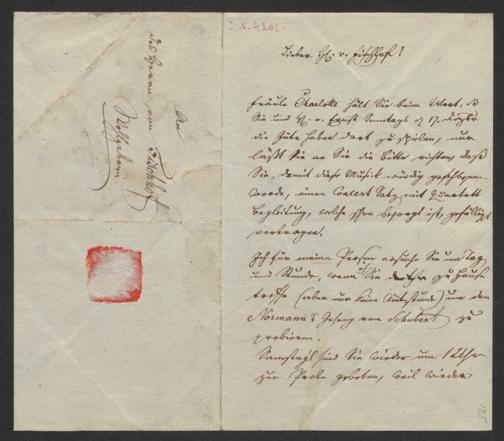 I. N. 4261.
Lieber H. v. Fischhof!
Fräule Charlotte hält Sie beim Wort, daß
Sie und H. v. Ernst Sonntags d. 17. Dezbr
die Güte haben dort zu spielen, nur
läßt sie an Sie die Bitte richten, daß
Sie, damit diese Musik würdig geschlossen
werde, einen Concert Satz mit Quartett
Begleitung, welche schon besorgt ist, gefälligst
vortragen.
Ich für meine Person ersuche Sie um Tag
und Stunde, wenn Sie zu Hause
treffe (aber nur keine Amtsstunde) um den
Normann's Gesang von Schubert zu
probieren.
Samstags sind Sie wieder um 1 Uhr
zur Probe gebeten, weil wieder
An
des Herrn von Fischhof
Wohlgeboren